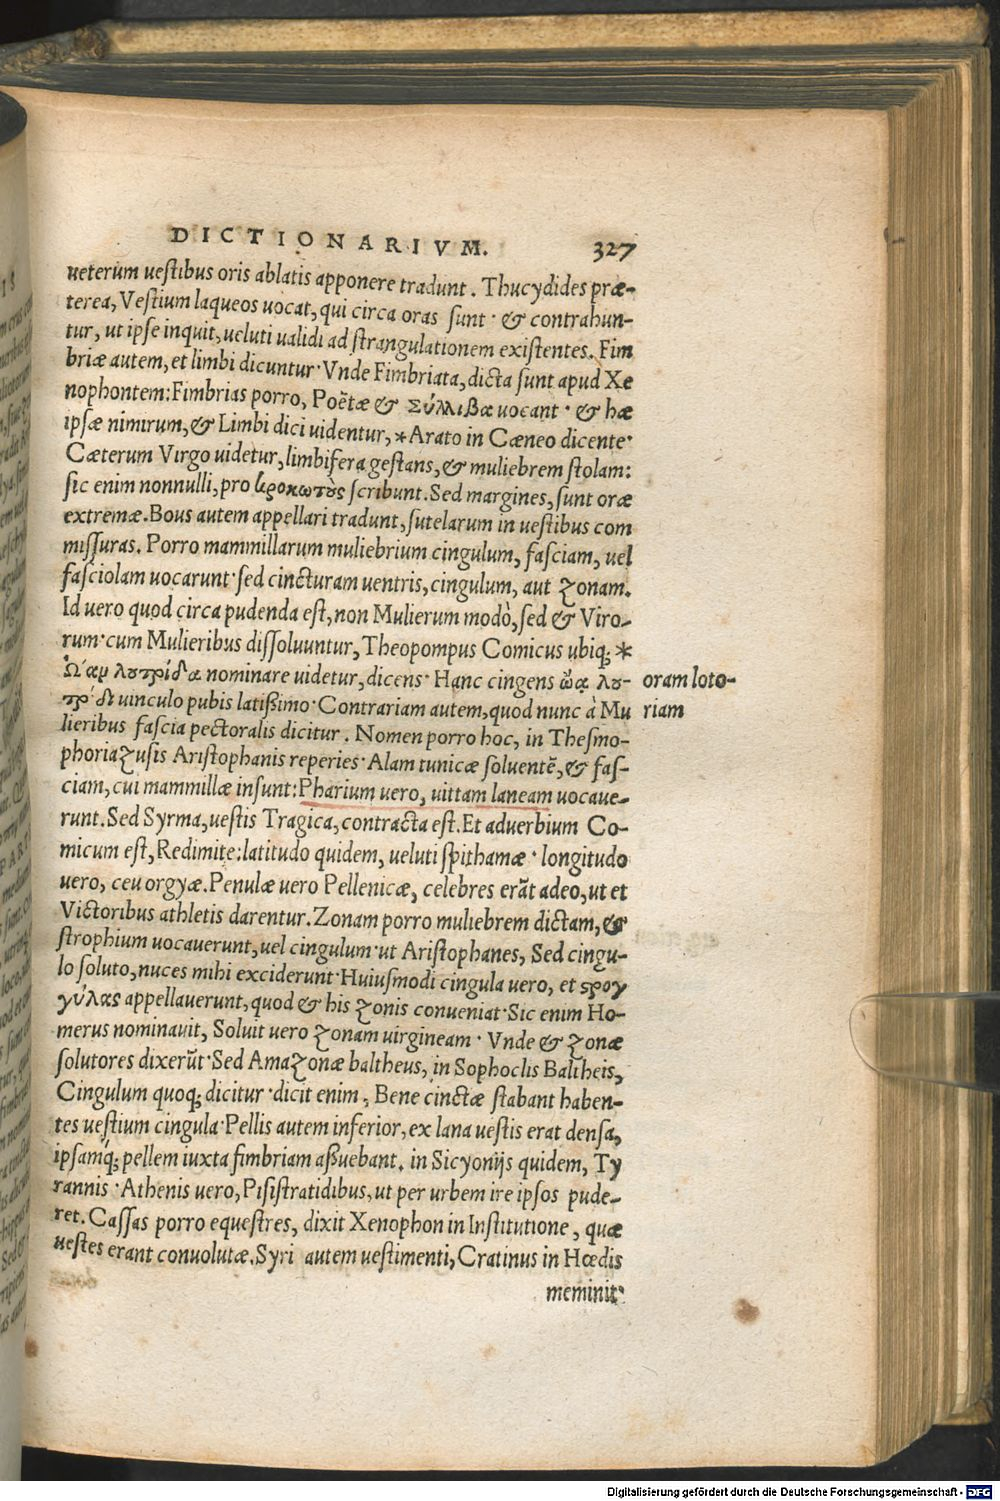 DICTIONARIVM. 327
ueterum uestibus oris ablatis apponere tradunt. Thucydides præ-
terea, Vestium laqueos uocat, qui circa oras sunt· & contrahun-
tur, ut ipse inquit, ueluti ualidi ad strangulationem existentes. Fim
briæ autem, et limbi dicuntur· Vnde Fimbriata, dicta sunt apud Xe
nophontem: Fimbrias porro, Poëtæ & uocant· & hæ
ipsæ nimirum, & Limbi dici uidentur, *Arato in Cæneo dicente·
Cæterum Virgo uidetur, limbifera gestans, & muliebrem stolam:
sic enim nonnulli, pro κροκωτὸς scribunt. Sed margines, sunt oræ
extremæ. Bous autem appellari tradunt, sutelarum in uestibus com
missuras. Porro mammillarum muliebrium cingulum, fasciam, uel
fasciolam uocarunt· sed cincturam uentris, cingulum, aut zonam.
Id uero quod circa pudenda est, non Mulierum modò, sed & Viro-
rum· cum Mulieribus dissoluuntur, Theopompus Comicus ubiq; *
Ὤαμ λουτρίδα nominare uidetur, dicens· Hanc cingens ὤᾳ λου-
τρίδι uinculo pubis latißimo· Contrariam autem, quod nunc à Mu
oram loto-
riam
lieribus fascia pectoralis dicitur. Nomen porro hoc, in Thesmo-
phoriazusis Aristophanis reperies· Alam tunicæ soluentē, & fas-
ciam, cui mammillæ insunt: Pharium uero, uittam laneam uocaue-
runt. Sed Syrma, uestis Tragica, contracta est. Et aduerbium Co-
micum est, Redimite: latitudo quidem, ueluti spithamæ· longitudo
uero, ceu orgyæ. Penulæ uero Pellenicæ, celebres erāt adeo, ut et
Victoribus athletis darentur. Zonam porro muliebrem dictam, &
strophium uocauerunt, uel cingulum· ut Aristophanes, Sed cingu-
lo soluto, nuces mihi exciderunt· Huiusmodi cingula uero, et ϛρογ
γύλας appellauerunt, quod & his zonis conueniat· Sic enim Ho-
merus nominauit, Soluit uero zonam uirgineam· Vnde & zonæ
solutores dixerūt· Sed Amazonæ baltheus, in Sophoclis Baltheis,
Cingulum quoq; dicitur· dicit enim, Bene cinctæ stabant haben-
tes uestium cingula· Pellis autem inferior, ex lana uestis erat densa,
ipsamq́; pellem iuxta fimbriam aßuebant. in Sicyonijs quidem, Ty
rannis· Athenis uero, Pisistratidibus, ut per urbem ire ipsos pude-
ret. Cassas porro equestres, dixit Xenophon in Institutione, quæ
uestes erant conuolutæ. Syri autem uestimenti, Cratinus in Hœdis
meminit·
Digitalisierung gefördert durch die Deutsche Forschungsgemeinschaft - DFG